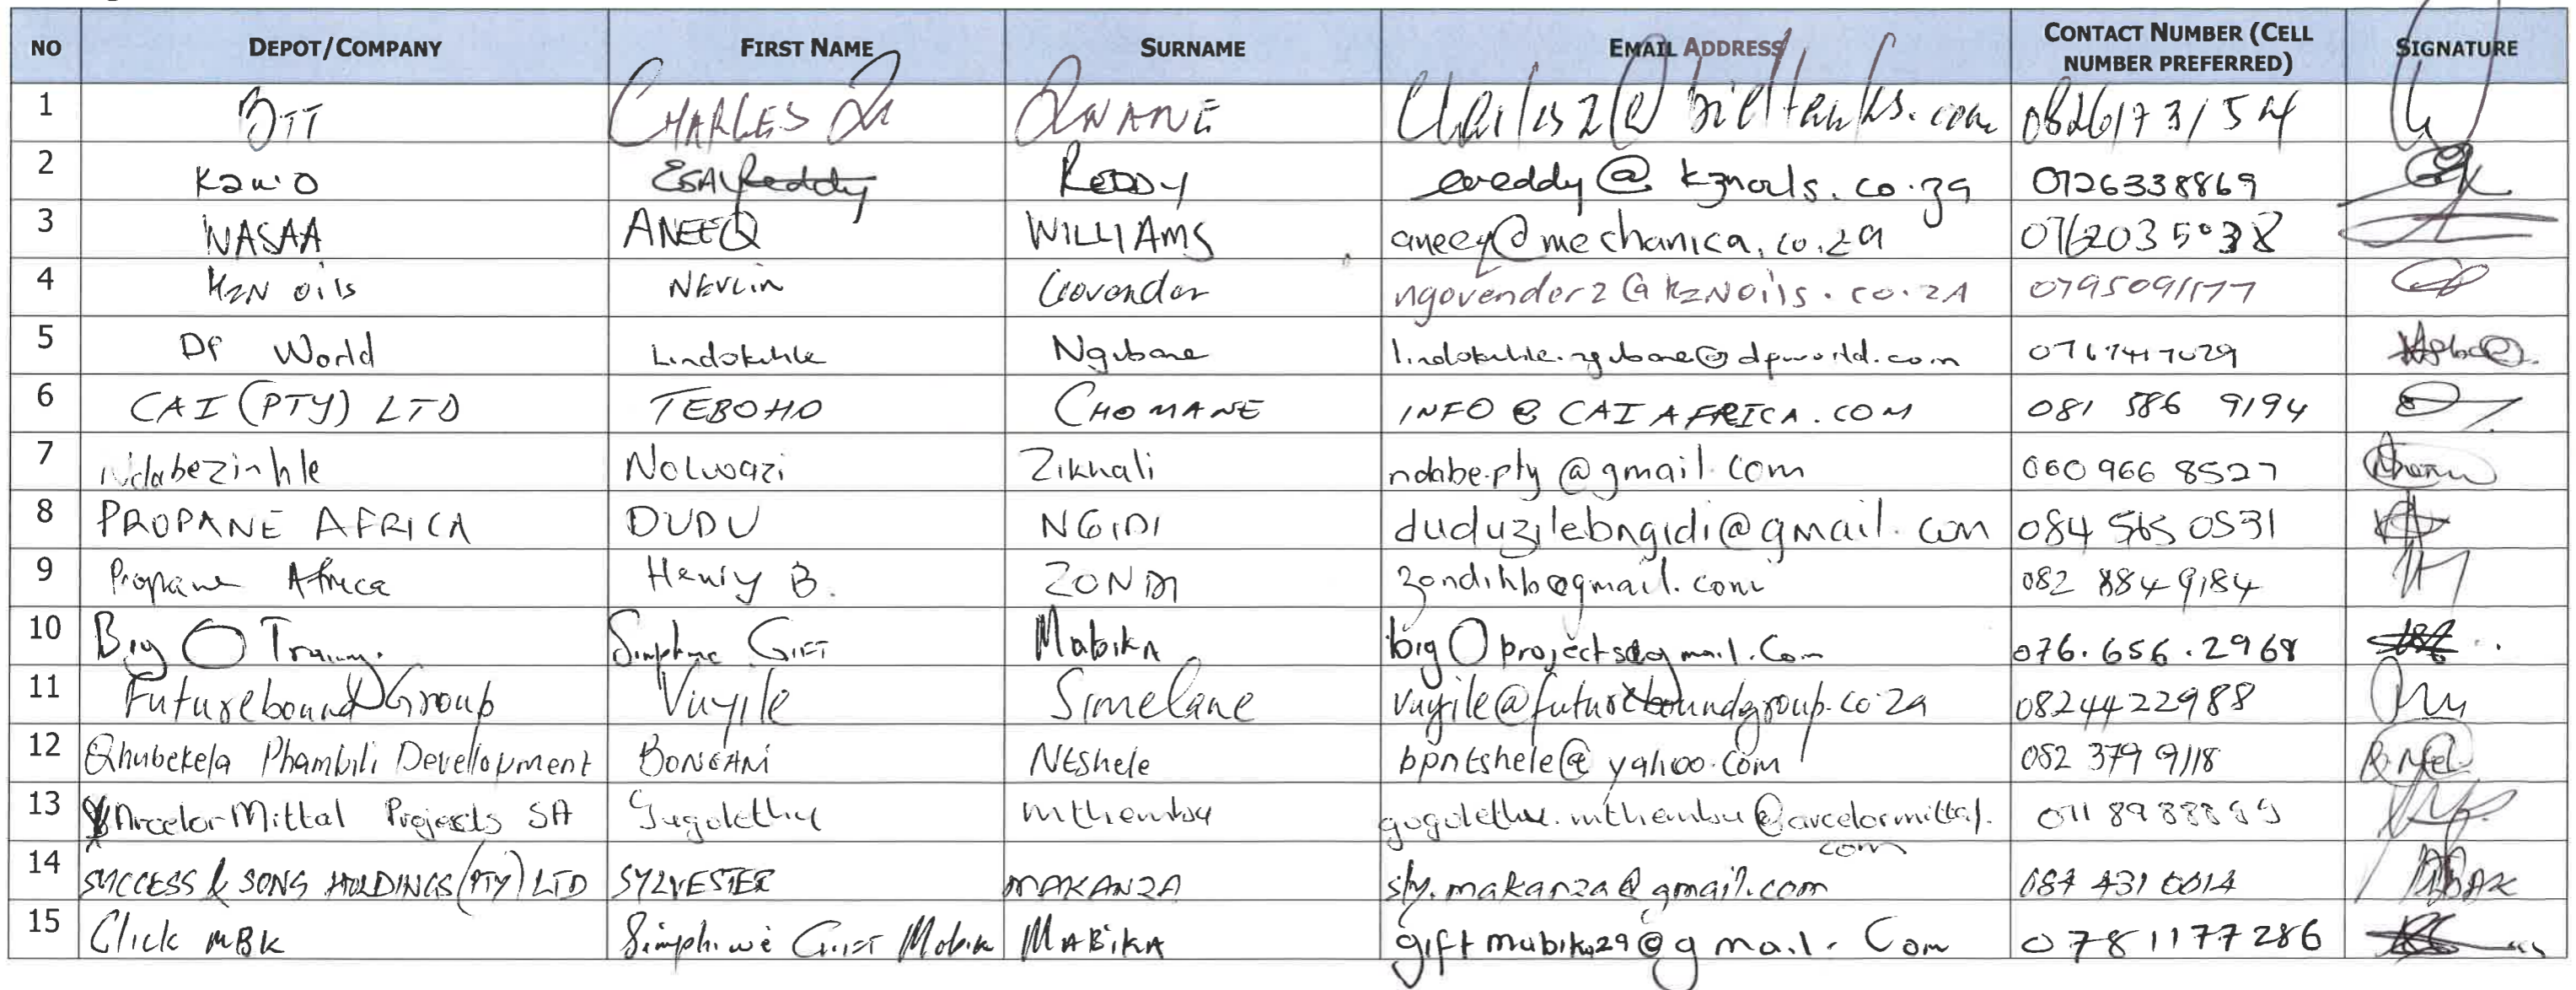 NO DEPOT/COMPANY FIRST NAME SURNAME EMAIL ADDRESS CONTACT NUMBER (CELL NUMBER PREFERRED) SIGNATURE
1 BTT CHARLES
2 ESAY Reddy REDDY ereddy@kznoils.co.za 0726338869
3 WASAA ANEEQ WILLIAMS aneeq@mechanica.co.za 0762035038
4 KZN oils NEVLIN Govender ngovender2@KZNoils.co.ZA 0795091177
5 DP World Lindokuhle Ngubane lindokuhle.ngubane@dpworld.com
6 CAI (PTY) LTD TEBOHO CHOMANE INFO@CAIAFRICA.COM 081 586 9194
7 Ndabezinhle Nolwazi Zikhali ndabe.pty@gmail.com 060 966 8527
8 PROPANE AFRICA DUDU NGIDI duduzilebngidi@gmail.com 084 565 0531
9 Propane Africa Henry B. ZONDI zondihb@gmail.com 082 884 9184
10 Big O GIFT Mabika bigOprojects@gmail.Com 076.656.2968
11 Futurebound Group Vuyile Simelane vuyile@futureboundgroup.co.za 0824422988
12 Qhubekela Phambili Development BONGANI Ntshele bpntshele@yahoo.com 082 379 9118
13 ArcelorMittal Projects SA Gugulethu mthembu gugulethu.mthembu@arcelormittal.
com
14 SUCCESS & SONG HOLDINGS (PTY) LTD SYLVESTER MAKANZA sly.makanza@gmail.com
15 Click MBK Simphiwe GIFT MABIKA giftmabika29@gmail.Com 0781177286